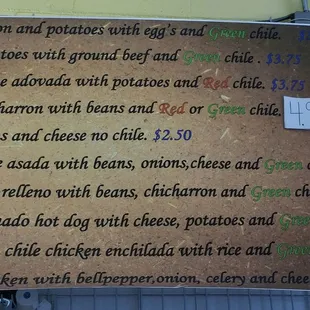 on and potatoes with egg's and Green chile. $
toes with ground beef and Green chile . $3.75
e adovada with potatoes and Red chile. $3.75
harron with beans and Red or Green chile. 4.
s and cheese no chile. $2.50
e asada with beans, onions,cheese and Green
relleno with beans, chicharron and Green ch
ado hot dog with cheese, potatoes and Gree
chile chicken enchilada with rice and Green
ken with bellpepper,onion, celery and chee